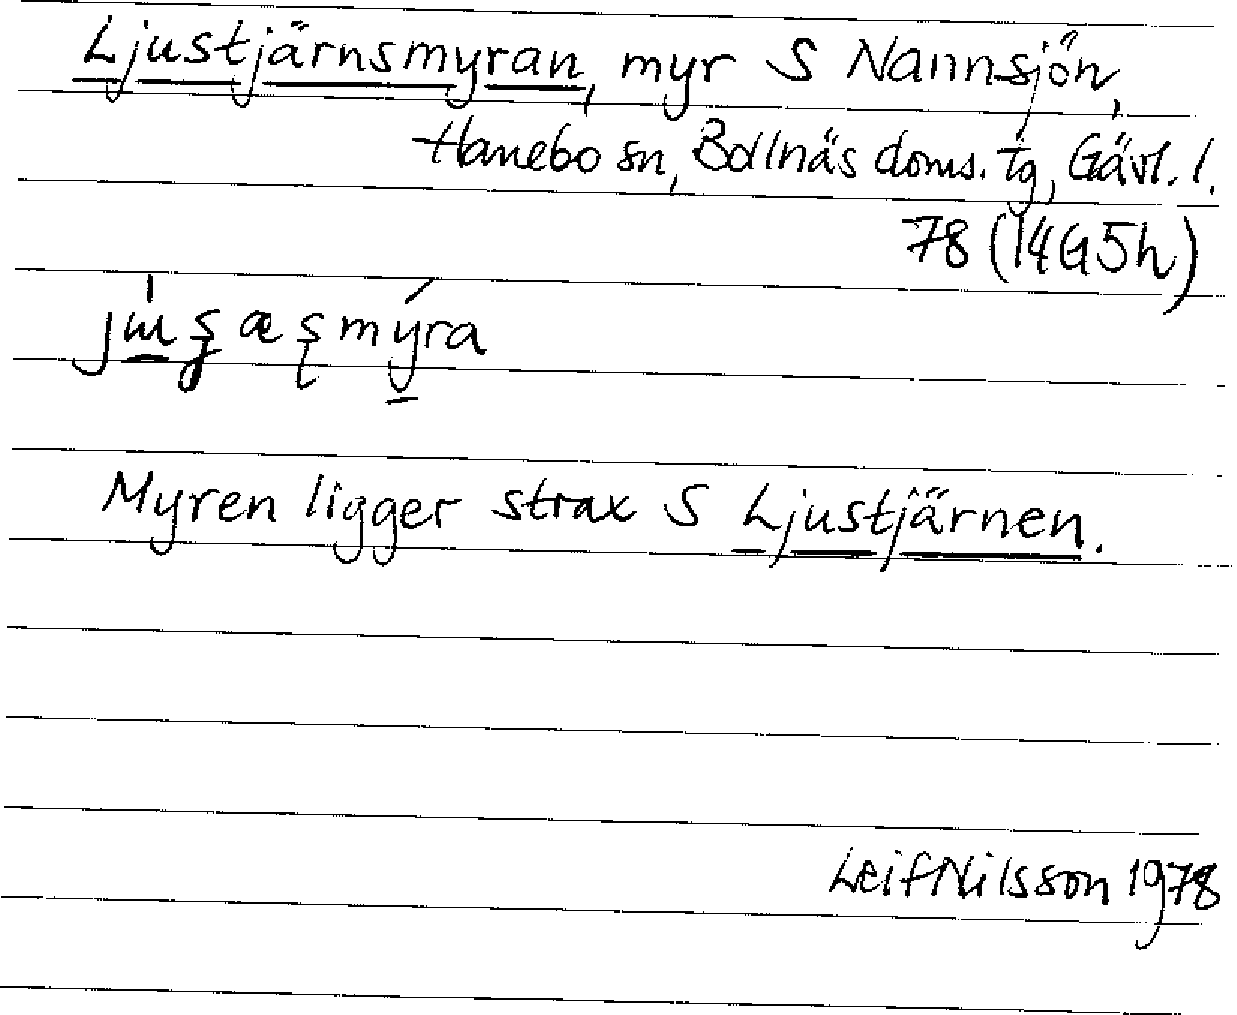 Ljustjärnsmyran, myr S Nannsjön,
Hanebo sn, Bollnäs doms. tg, Gävl. l.
78 (14G5h)
Myren ligger strax S Ljustjärnen.
Leif Nilsson 1978